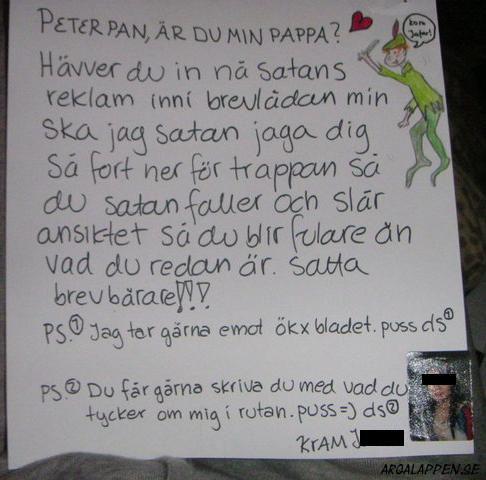 PETER PAN, ÄR DU MIN PAPPA?
kom Jafar!
Hävver du in nå satans
reklam inni brevlådan min
ska jag satan jaga dig
så fort ner för trappan så
du satan faller och slår
ansiktet så du blir fulare än
vad du redan är. satta
brevbärare!!!
PS.① Jag tar gärna emot ökx bladet. puss ds①
PS.② Du får gärna skriva du med vad du
tycker om mig i rutan. puss=) ds②
KRAM J
ARGALAPPEN.SE